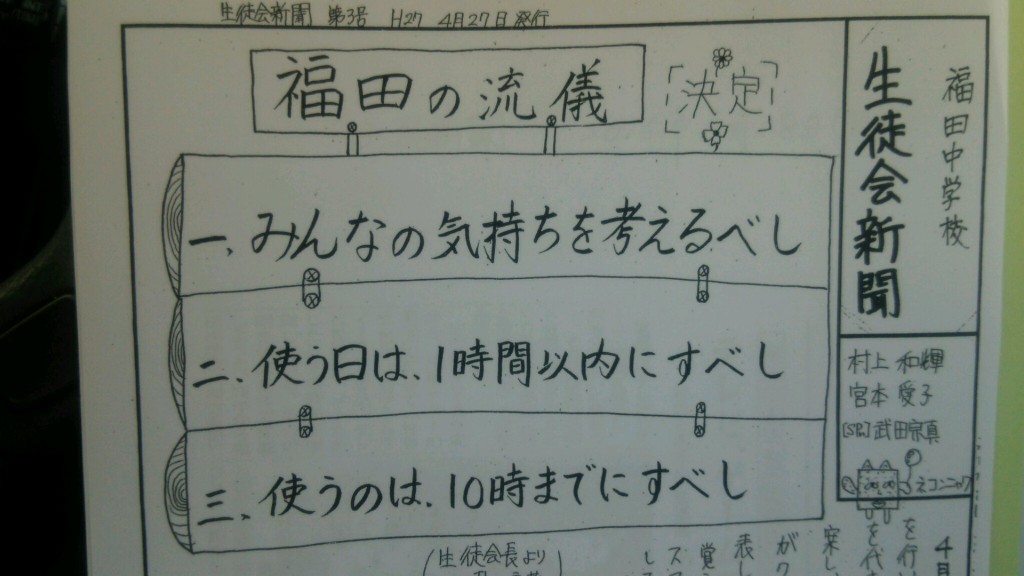 生徒会新聞 第3号 H27 4月27日発行
福田中学校
生徒会新聞
福田の流儀
決定
一、みんなの気持ちを考えるべし
二、使う日は、1時間以内にすべし
三、使うのは、10時までにすべし
村上 和輝
宮本 愛子
武田宗真
ネコンニャク
(生徒会長より